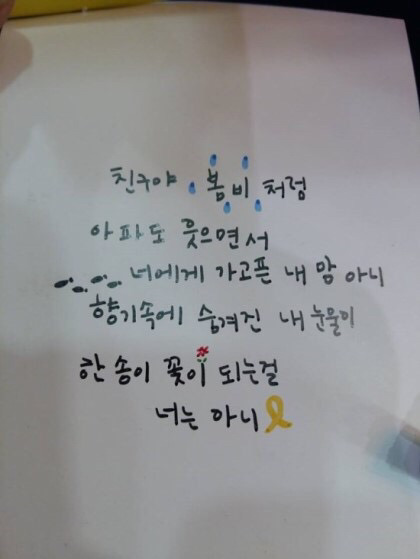 친구야 봄비처럼
아파도 웃으면서
너에게 가고픈 내 맘 아니
향기속에 숨겨진 내 눈물이
한 송이 꽃이 되는걸
너는 아니